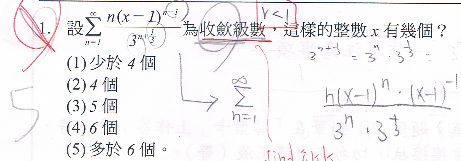 1. 設 $\sum_{n=1}^{\infty} \frac{n(x-1)^{n-1}}{3^{n+\frac{1}{3}}}$ 為收斂級數,這樣的整數 x 有幾個?
r<1
(1) 少於 4 個
(2) 4 個
(3) 5 個
(4) 6 個
(5) 多於 6 個。
5
$3^{n+\frac{1}{3}} = 3^n \cdot 3^{\frac{1}{3}}$
→ $\sum_{n=1}^{\infty} \frac{n(x-1)^n \cdot (x-1)^{-1}}{3^n \cdot 3^{\frac{1}{3}}}$